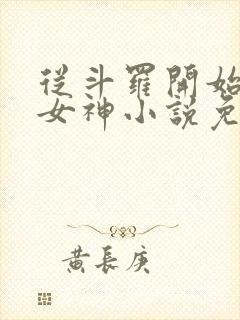 從斗羅開始
女神小説免
黃長庚